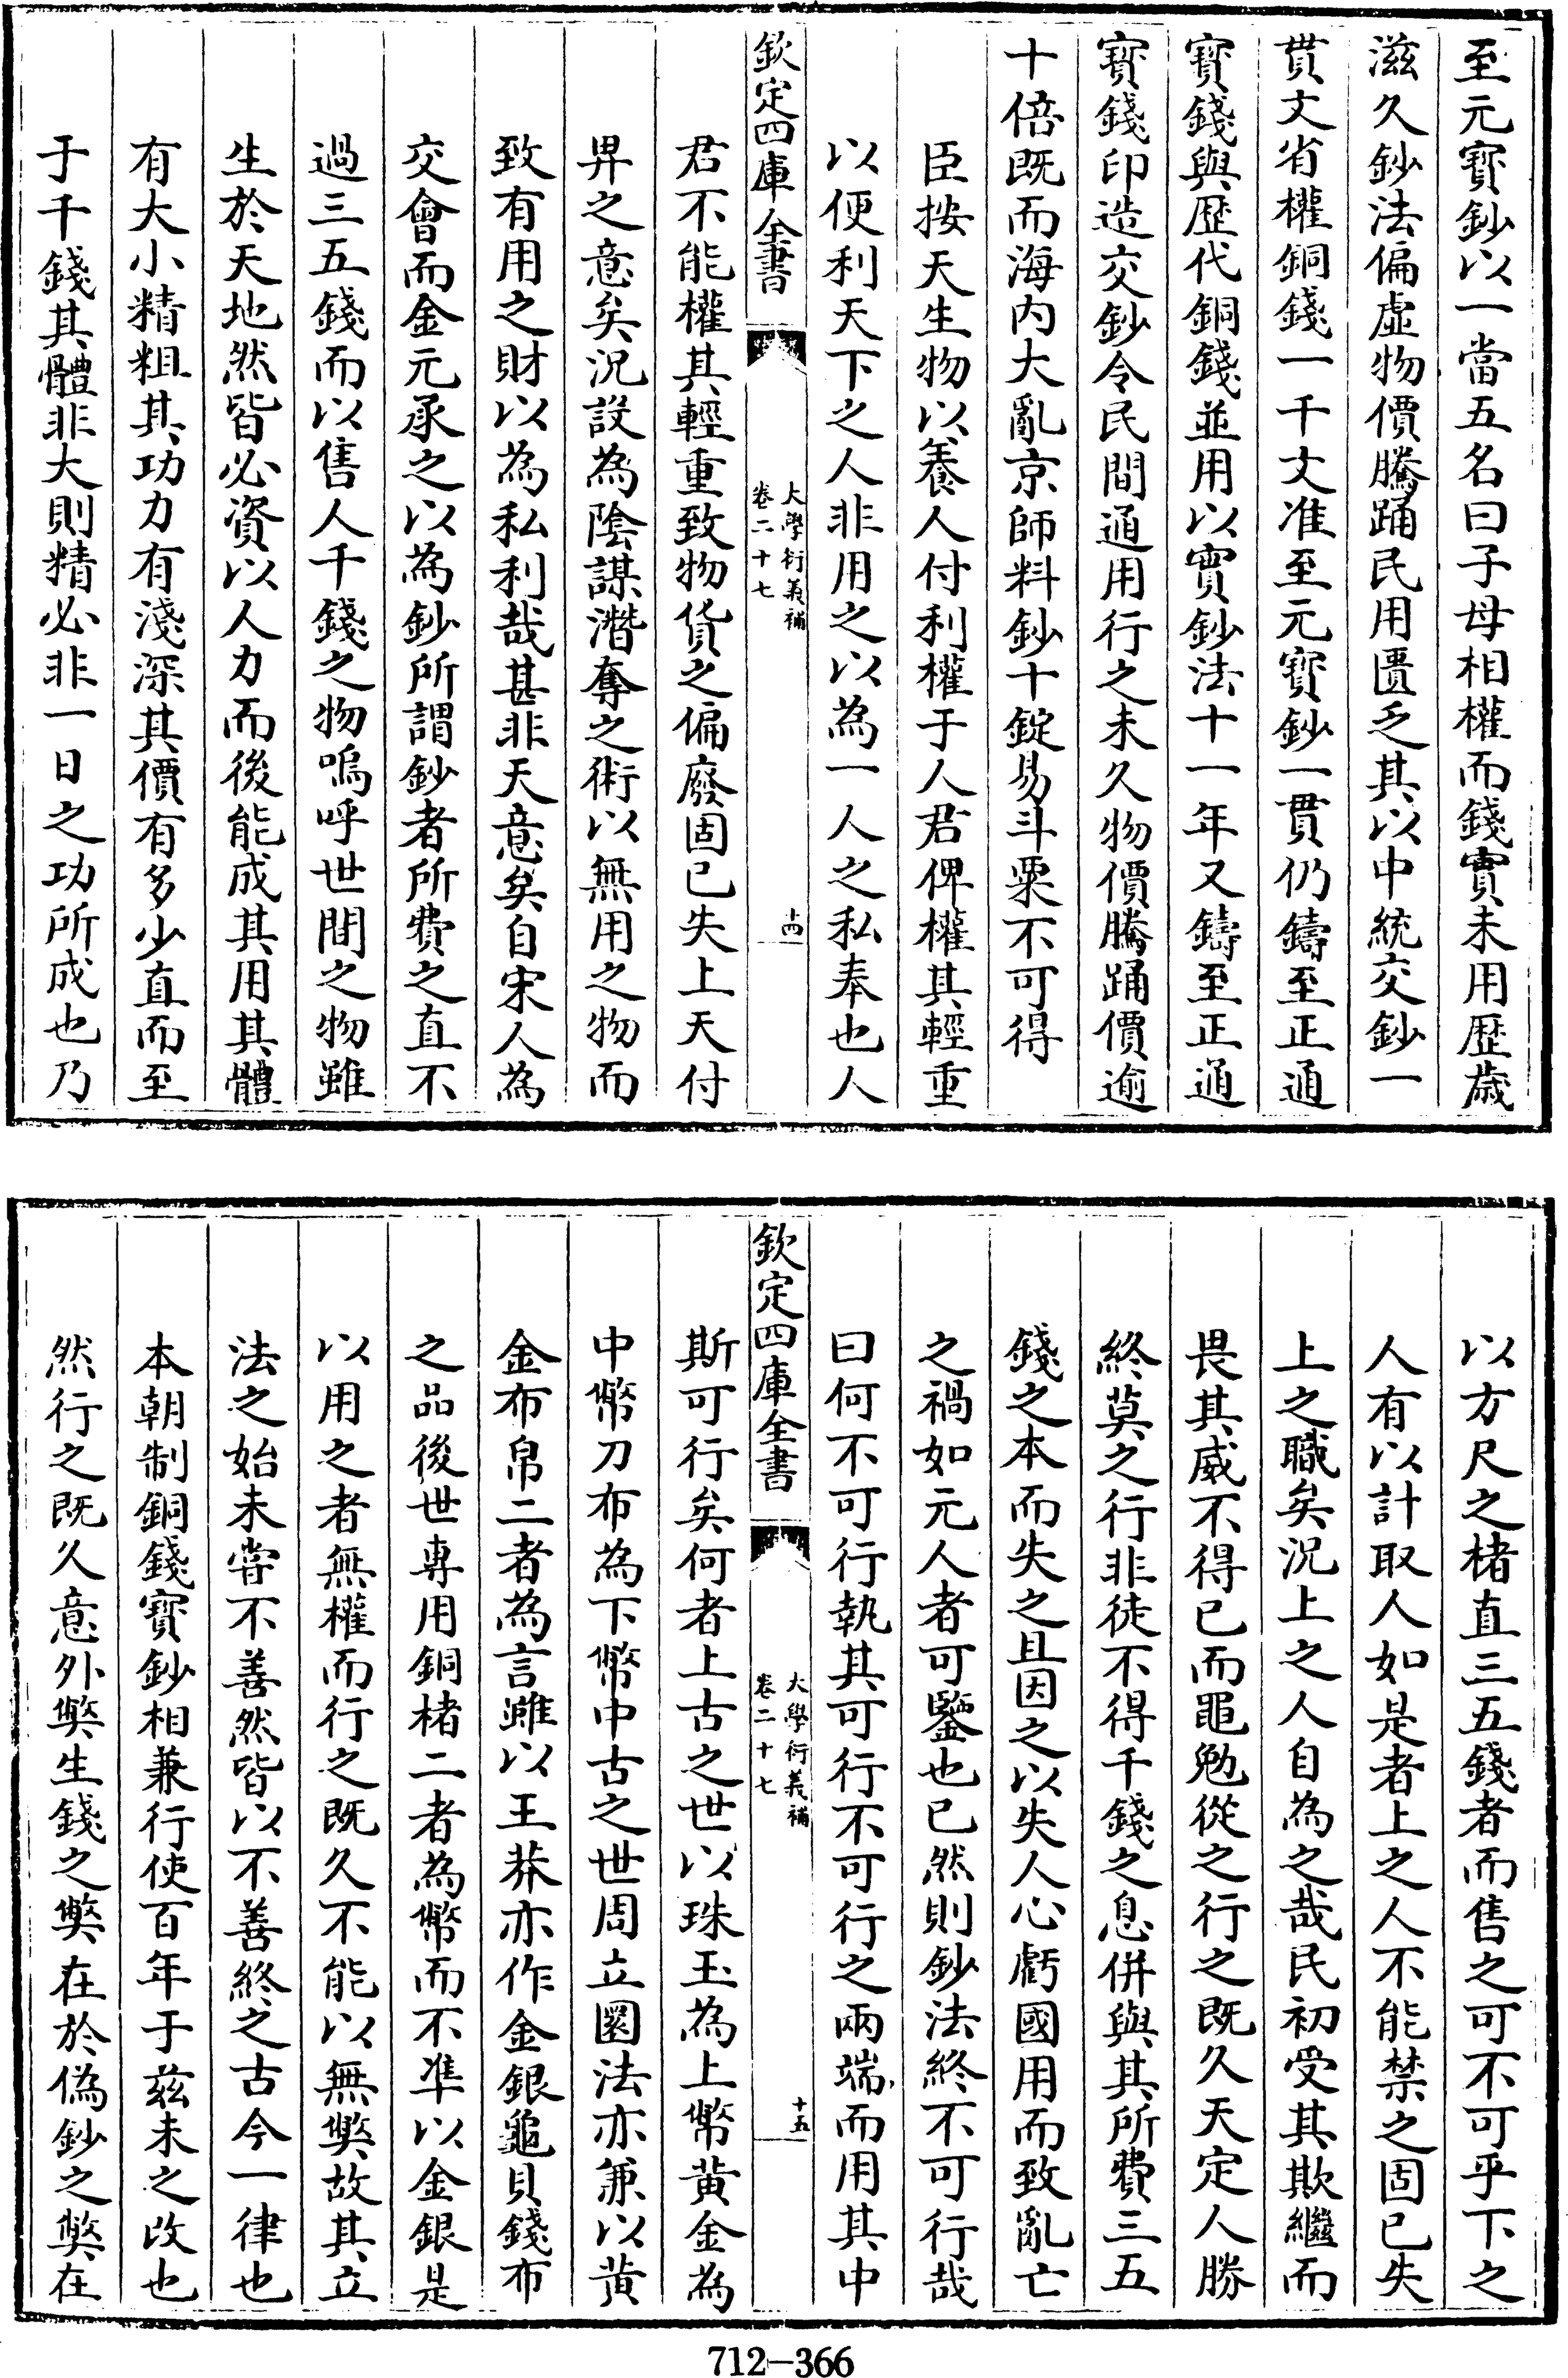 至元寳鈔以一當五名曰子母相權而錢實未用歴歳
滋久鈔法偏虛物價騰踊民用匱乏其以中統交鈔一
貫文省權銅錢一千文准至元寳鈔一貫仍鑄至正通
寳錢與歴代銅錢並用以實鈔法十一年又鑄至正通
寳錢印造交鈔令民間通用行之未久物價騰踊價逾
十倍既而海内大亂京師料鈔十錠易斗粟不可得
臣按天生物以養人付利權于人君俾權其輕重
以便利天下之人非用之以為一人之私奉也人
欽定四庫全書
大學衍義補
卷二十七
十四
君不能權其輕重致物貨之偏廢固已失上天付
畀之意矣況設為陰謀潛奪之術以無用之物而
致有用之財以為私利哉甚非天意矣自宋人為
交會而金元承之以為鈔所謂鈔者所費之直不
過三五錢而以售人千錢之物嗚呼世間之物雖
生於天地然皆必資以人力而後能成其用其體
有大小精粗其功力有淺深其價有多少直而至
于千錢其體非大則精必非一日之功所成也乃
以方尺之楮直三五錢者而售之可不可乎下之
人有以計取人如是者上之人不能禁之固已失
上之職矣況上之人自為之哉民初受其欺繼而
畏其威不得已而黽勉從之行之既久天定人勝
終莫之行非徒不得千錢之息併與其所費三五
錢之本而失之且因之以失人心虧國用而致亂亡
之禍如元人者可鑒也已然則鈔法終不可行哉
曰何不可行執其可行不可行之兩端而用其中
欽定四庫全書
大學衍義補
卷二十七
十五
斯可行矣何者上古之世以珠玉為上幣黄金為
中幣刀布為下幣中古之世周立圜法亦兼以黄
金布帛二者為言雖以王莽亦作金銀龜貝錢布
之品後世專用銅楮二者為幣而不準以金銀是
以用之者無權而行之既久不能以無獘故其立
法之始未甞不善然皆以不善終之古今一律也
本朝制銅錢寳鈔相兼行使百年于兹未之改也
然行之既久意外獘生錢之獘在於偽鈔之獘在
712-366